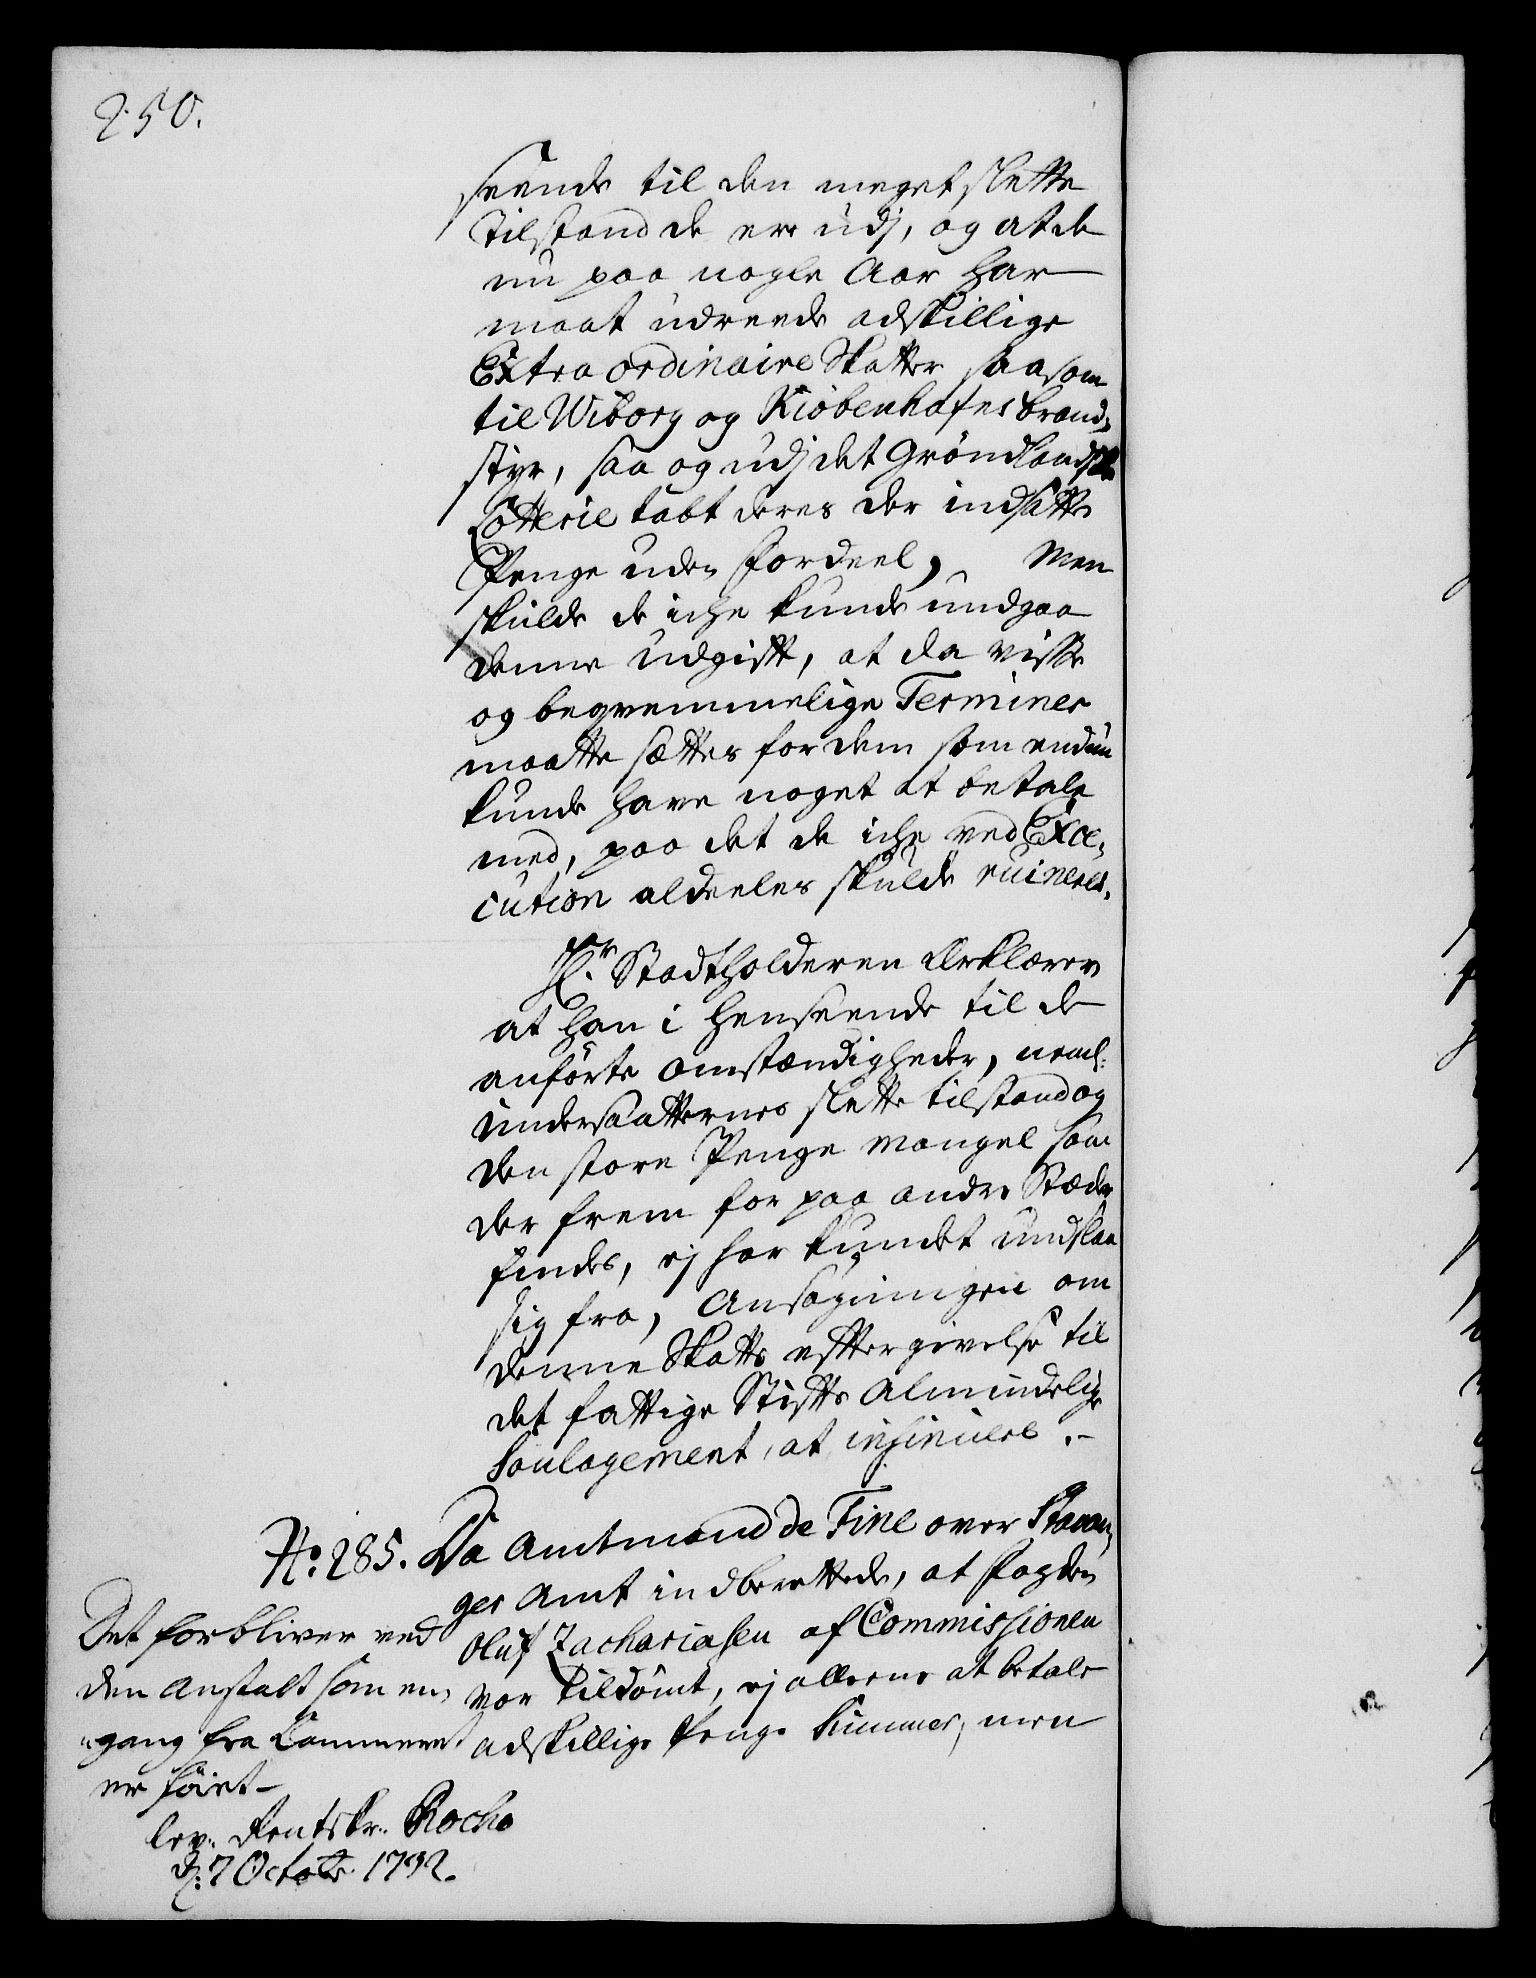 250.
seende til den meget slette
Tilstand de ere udj, og at de
nu paa nogle Aar har
maat udreede adskillige
Extra ordinaire Skatter saasom
til Wiborg og Kiöbenhafns brand-
styr, saa og udj det Gröndlandske
Lotterie tabt deres der indsatte
Penge uden fordeel, Men
skulde de iche kunde undgaa
denne Udgift, at da visse
og beqvemmelige Terminer
maatte sættes for dem som endnu
kunde have noget at betale
med, paa det de iche ved Exe-
cution aldeeles skulde ruineres.
Hr. Stadtholderen Erklærer
at han i henseende til de
anförte omstændigheder, neml:
undersaatternes slette tilstand og
den store Penge Mangel som
der frem for paa andre Stæder
findes, ej har kundet undslaa
sig fra, Ansögningen om
denne Skatts efftergivelse til
det fattige Stiffts Almindelige
Soulagement, at insinuere.-
No. 285. Da Amtmand de Fine over Stavan-
ger Amt indberettede, at fogden
Oluf Zachariasen af Commissionen
var tildömt, ej alleene at betale
adskillige Penge Summer, men
Det forbliver ved
den Anstalt som een-
gang fra Cammeret
er föiet-
lev. Rentskr. Kocho
d: 7 Octobr. 1732.